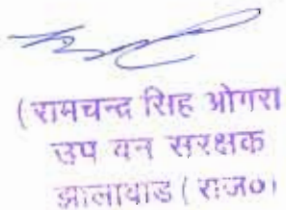 (रामचन्द्र सिह ओगरा
उप वन सरक्षक
झालावाड (राज०)